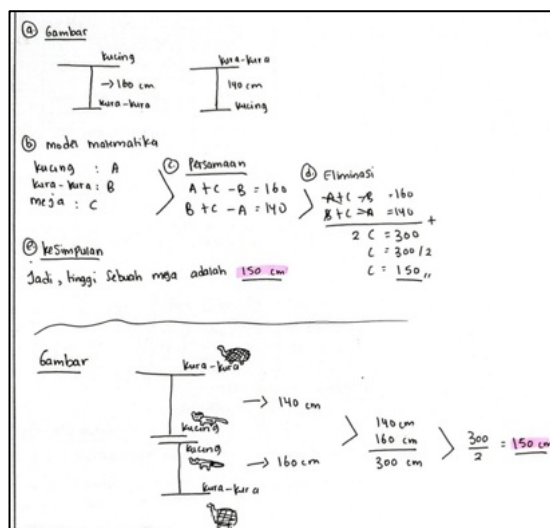 ⓐ Gambar
kucing
→ 160 cm
kura-kura
kura-kura
140 cm
kucing
ⓑ model matematika
kucing : A
kura-kura : B
meja : C
ⓒ Persamaan
A + C - B = 160
B + C - A = 140
ⓓ Eliminasi
A + C - B = 160
B + C - A = 140 +
2 C = 300
C = 300/2
C = 150 ,,
ⓔ kesimpulan
Jadi, tinggi sebuah meja adalah 150 cm
Gambar
kura-kura
→ 140 cm
kucing
kucing
→ 160 cm
kura-kura
140 cm
160 cm
300 cm
300
2
= 150 cm